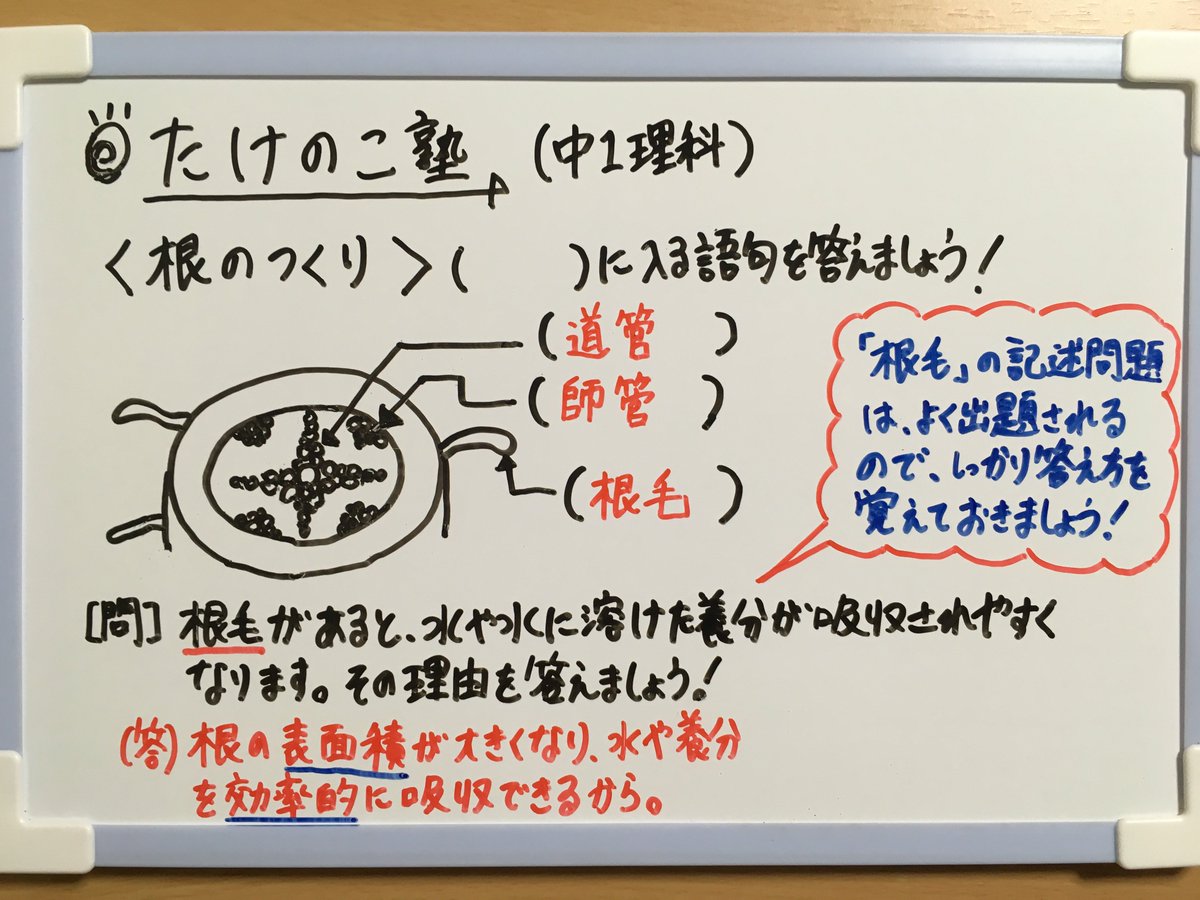 たけのこ塾 (中1理科)
〈根のつくり〉( )に入る語句を答えましょう!
(道管 )
(師管 )
(根毛 )
「根毛」の記述問題
は、よく出題される
ので、しっかり答え方を
覚えておきましょう!
[問] 根毛があると、水や水に溶けた養分が吸収されやすく
なります。その理由を答えましょう!
(答) 根の表面積が大きくなり、水や養分
を効率的に吸収できるから。